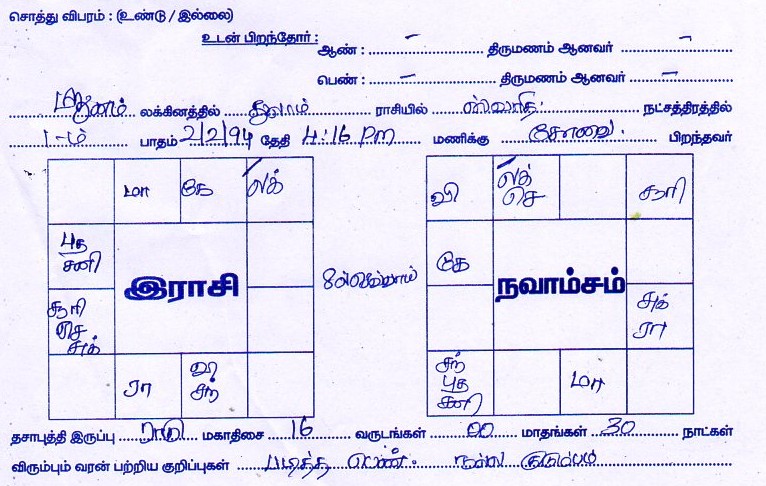 சொத்து விபரம் : (உண்டு / இல்லை)
உடன் பிறந்தோர் : ஆண் : – திருமணம் ஆனவர் –
பெண் : – திருமணம் ஆனவர் –
மிதுனம் லக்கினத்தில் துலாம் ராசியில் ஸ்வாதி நட்சத்திரத்தில்
1-ம் பாதம் 2/2/94 தேதி 4:16 PM மணிக்கு பிறந்தவர்
மா கே லக்
புத சனி
சூரி செ சுக்
இராசி
ரா வி சந்
செவ்வாய்
வி லக் செ சூரி
கே
நவாம்சம்
சுக் ரா
சந் புத சனி மா
தசாபுத்தி இருப்பு ராகு மகாதிசை 16 வருடங்கள் 00 மாதங்கள் 30 நாட்கள்
விரும்பும் வரன் பற்றிய குறிப்புகள் படித்த பெண். நல்ல குடும்பம்